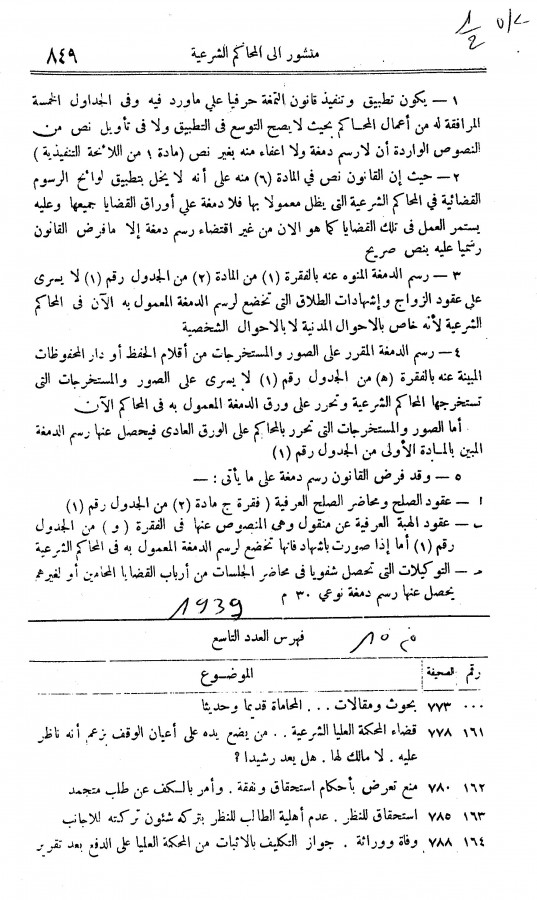 ١/٢ ٥/ح
منشور الى المحاكم الشرعية ٨٤٩
١ — يكون تطبيق وتنفيذ قانون التمغة حرفيا علي ماورد فيه وفى الجداول الخمسة
المرافقة له من أعمال المحاكم بحيث لايصح التوسع فى التطبيق ولا فى تأويل نص من
النصوص الواردة أن لارسم دمغة ولا اعفاء منه بغير نص (مادة ١ من اللائحة التنفيذية)
٢ — حيث إن القانون نص في المادة (٦) منه على أنه لا يخل بتطبيق لوائح الرسوم
القضائية في المحاكم الشرعية التى يظل معمولا بها فلا دمغة علي أوراق القضايا جميعها وعليه
يستمر العمل فى تلك القضايا كما هو الان من غير اقتضاء رسم دمغة إلا مافرض القانون
رسميا عليه بنص صريح
٣ — رسم الدمغة المنوه عنه بالفقرة (١) من المادة (٢) من الجدول رقم (١) لا يسرى
على عقود الزواج وإشهادات الطلاق التى تخضع لرسم الدمغة المعمول به الآن فى المحاكم
الشرعية لأنه خاص بالاحوال المدنية لا بالاحوال الشخصية
٤ — رسم الدمغة المقرر على الصور والمستخرجات من أقلام الحفظ أو دار المحفوظات
المبينة عنه بالفقرة (ه) من الجدول رقم (١) لا يسرى على الصور والمستخرجات التى
تستخرجها المحاكم الشرعية وتحرر على ورق الدمغة المعمول به فى المحاكم الآن
أما الصور والمستخرجات التى تحرر بالمحاكم على الورق العادى فيحصل عنها رسم الدمغة
المبين بالمادة الأولى من الجدول رقم (١)
٥ — وقد فرض القانون رسم دمغة على ما يأتى : —
ا — عقود الصلح ومحاضر الصلح العرفية (فقرة ج مادة (٢) من الجدول رقم (١)
ب — عقود الهبة العرفية عن منقول وهى المنصوص عنها فى الفقرة (و) من الجدول
رقم (١) أما إذا صورت باشهاد فانها تخضع لرسم الدمغة المعمول به فى المحاكم الشرعية
ج — التوكيلات التى تحصل شفويا فى محاضر الجلسات من أرباب القضايا المحامين أو لغيرهم
يحصل عنها رسم دمغة نوعي ٣٠ م
1939
فهرس العدد التاسع
رقم الصحيفة الموضوع
٠٠٠ ٧٧٣ بحوث ومقالات . . . المحاماة قديما وحديثا
١٦١ ٧٧٨ قضاء المحكمة العليا الشرعية . . من يضع يده على أعيان الوقف بزعم أنه ناظر
عليه . لا مالك لها . هل يعد رشيدا ؟
١٦٢ ٧٨٠ منع تعرض بأحكام استحقاق ونفقة . وأمر بالكف عن طلب متجمد
١٦٣ ٧٨٥ استحقاق للنظر . عدم أهلية الطالب للنظر بتركه شئون تركته للاجانب
١٦٤ ٧٨٨ وفاة ووراثة . جواز التكليف بالاثبات من المحكمة العليا على الدفع بعد تقرير